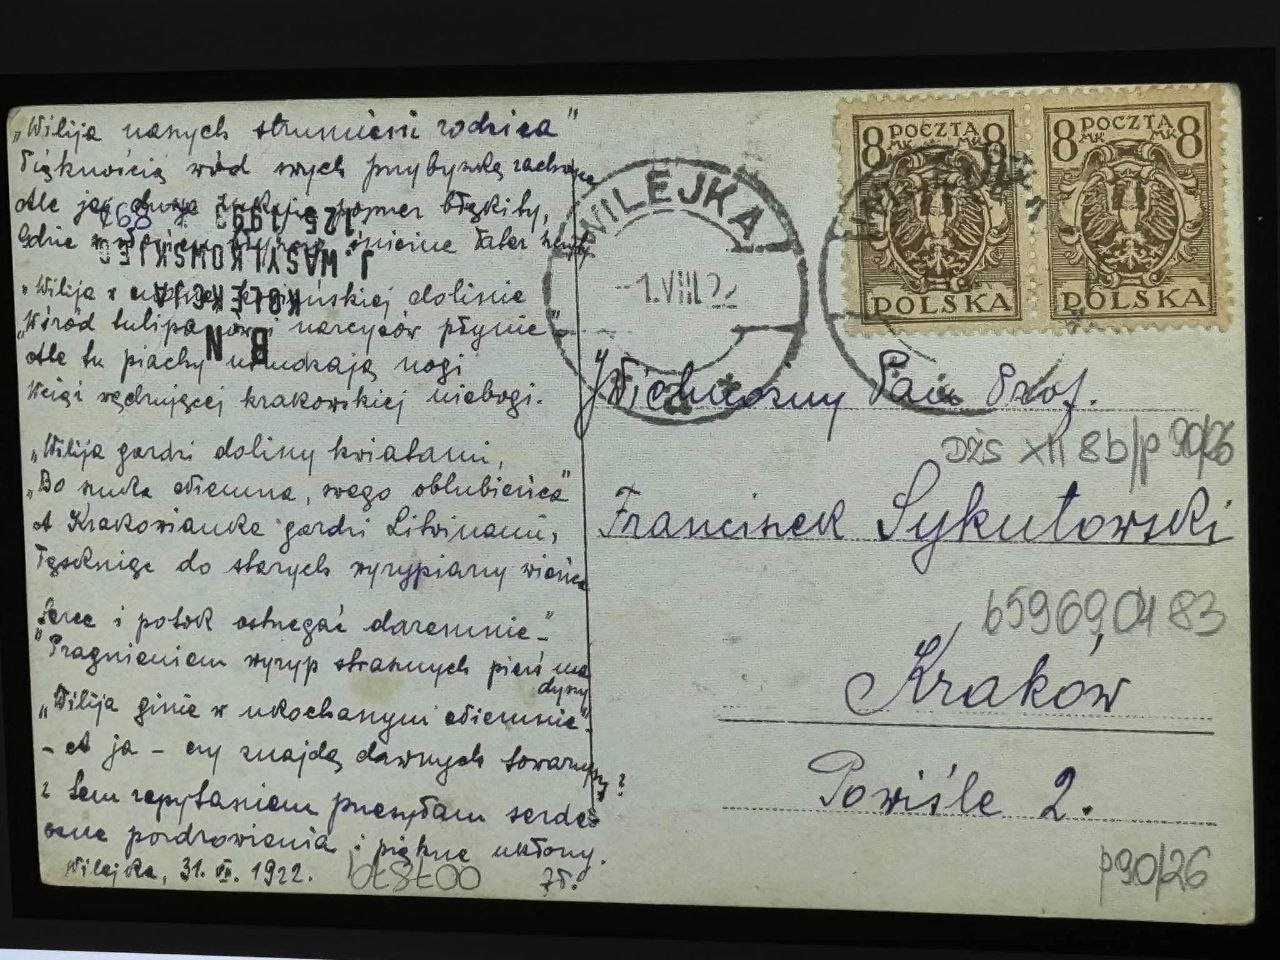 „Wilija naszych strumieni rodzica"
Pięknością wśród swych przybyszkę zachwyca
Ale jej błękity,
Gdzie
„Wilija w kowieńskiej dolinie
„Wśród tulipanów i narcyzów płynie"
Ale tu piachy nogi
Wciąż wędrującej krakowskiej niebogi.
„Wilija gardzi doliny kwiatami,
„Bo szuka Niemna, swego oblubieńca"
A Krakowianka gardzi Litwinami,
Tęskniąc do starych wyrypiarzy wieńca
Serce i potok ostrzegać daremnie –"
Pragnieniem wyryp strasznych pierś ma
dyszy
„Wilija ginie w ukochanym Niemnie"
– A ja – czy znajdę dawnych towarzyszy?
Z tem zapytaniem przesyłam serde-
czne pozdrowienia i piękne ukłony.
Wilejka, 31. VII. 1922.
125 1993 897
J. WASYLKOWSKIEGO
KOLEKCJA
BN
007870
WILEJKA
-1.VIII.22
* a *
8 POCZTA 8
MK MK
POLSKA
8 POCZTA 8
MK MK
POLSKA
JWielmożny Pan Prof.
DŻS XII 8b/p 90/26
Franciszek Sykutowski
b59690483
Kraków
Powiśle 2.
p90/26